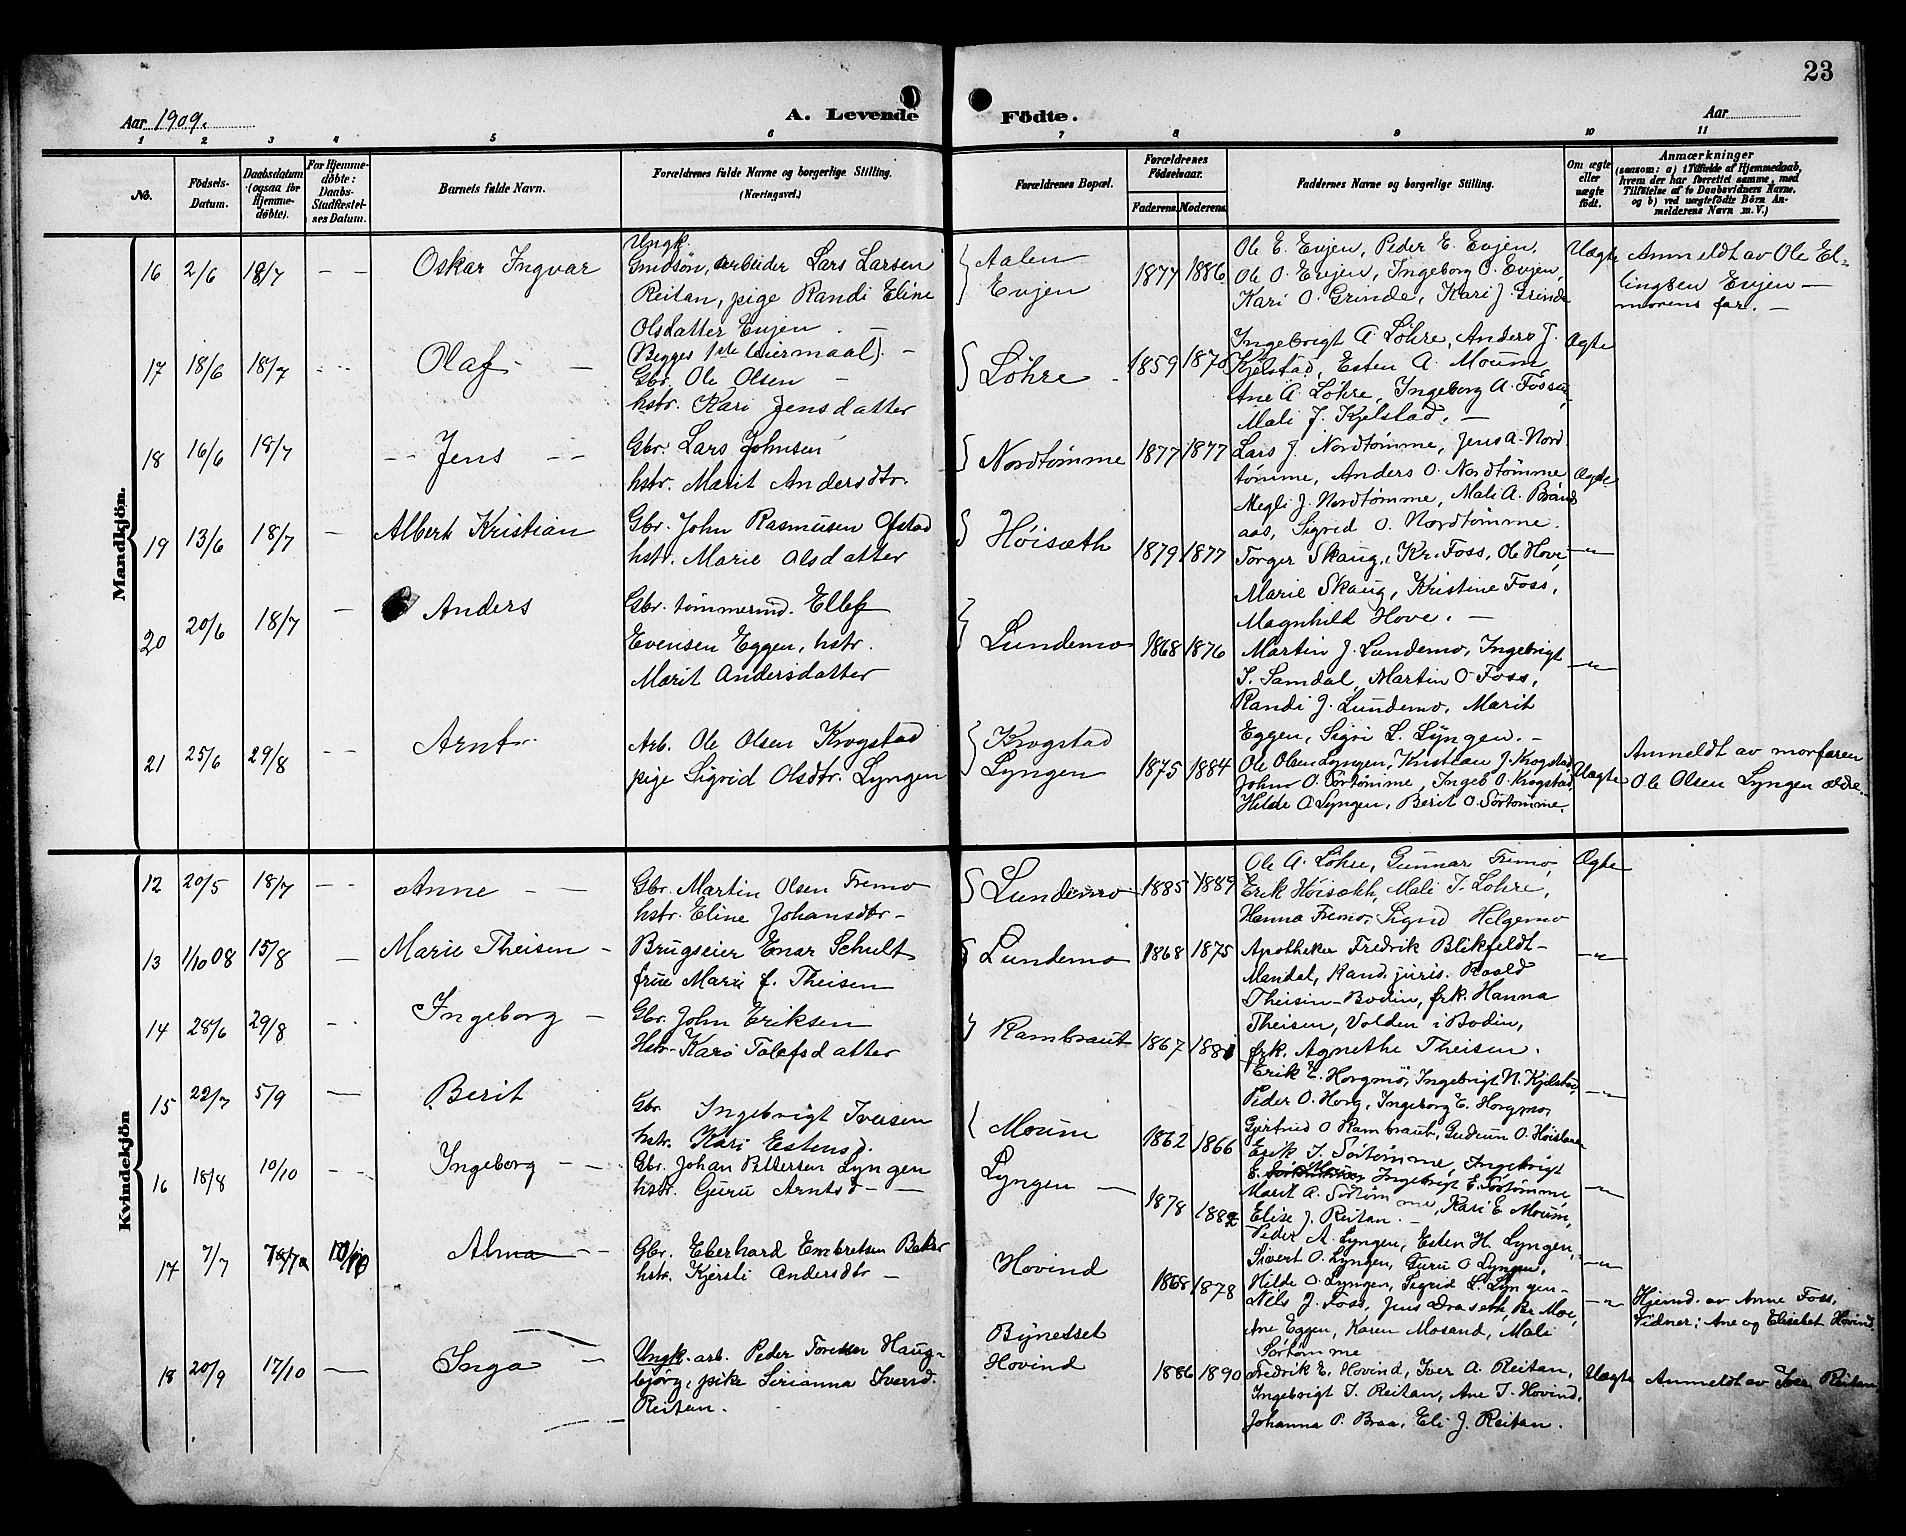 23
Aar 1909.
A. Levende Födte.
Aar
1 2 3 4 5 6 7 8 9 10 11
No.
Födsels-
Datum.
Daabsdatum
(ogsaa for
Hjemme-
döbte).
For Hjemme-
döbte:
Daabs-
Stadfæstel-
ses Datum.
Barnets fulde Navn.
Forældrenes fulde Navne og borgerlige Stilling.
(Næringsvei.)
Forældrenes Bopæl.
Forældrenes
Födselsaar.
Faderens. Moderens.
Faddernes Navne og borgerlige Stilling.
Om ægte
eller
uægte
födt.
Anmærkninger
(saasom: a) i Tilfælde af Hjemmedaab,
hvem der har forrettet samme, med
Tilföielse af to Daabsvidners Navne,
og b) ved uægtefödte Börn An-
melderens Navn m. V.)
Mandkjön.
16 2/6 18/7 — — Oskar Ingvar
Ungk.
Gmdsön, arbeider Lars Larsen
Reitan, pige Randi Eline
Olsdatter Evjen. —
(Begges 1ste leiermaal). —
Aalen
Evjen
1877 1886
Ole E. Evjen, Peder E. Evjen,
Ole O. Evjen, Ingeborg O. Evjen,
Kari O. Grinde, Kari J. Grinde
Uægte
Anmeldt av Ole El-
lingsen Evjen —
morens far. —
17 18/6 18/7 Olaf —
Gbr. Ole Olsen —
hstr. Kari Jensdatter
Löhre
1859 1870
Ingebrigt A. Löhre, Anders J.
Kjelstad, Esten A. Moum,
Ane A. Löhre, Ingeborg A. Fossum,
Mali J. Kjelstad. —
Ægte
18 16/6 18/7 — Jens —
Gbr. Lars Johnsen
hstr. Marit Andersdtr.
Nordtömme
1877 1877
Lars J. Nordtömme, Jens A. Nord
tömme, Anders O. Nordtömme
Megli J. Nordtömme, Mali A. Brand
aas, Sigrid O. Nordtömme.
Ægte
19 13/6 18/7 — Albert Kristian
Gbr. John Rasmusen Ofstad
hstr. Marie Olsdatter
Höisæth
1879 1877
Torger Skaug, Kr. Foss, Ole Hove,
Marie Skaug, Kristine Foss,
Magnhild Hove. —
—"—
20 20/6 18/7 — Anders
Gbr. tömmermd. Ellef
Evensen Eggen, hstr.
Marit Andersdatter
Lundemo
1868 1876
Martin J. Lundemo, Ingebrigt
I. Samdal, Martin O. Foss,
Randi J. Lundemo, Marit
Eggen, Sigri L. Lyngen. —
—"—
21 25/6 29/8 — — Arnt
Arb. Ole Olsen Krogstad
pige Sigrid Olsdtr. Lyngen
Krogstad
Lyngen
1875 1884
Ole Olsen Lyngen, Kristian J. Krogstad,
John O. Sörtömme, Ingeb. O. Krogstad,
Hilde O. Lyngen, Berit O. Sörtömme.
Uægte
Anmeldt av morfaren
Ole Olsen Lyngen ældre. —
Kvindekjön
12 20/5 18/7 — — Anne — —
Gbr. Martin Olsen Fremo
hstr. Eline Johansdtr —
Lundemo
1885 1889
Ole A. Löhre, Gunnar Fremo,
Erik Höisæth, Mali I. Löhre,
Hanna Fremo, Sigrid Helgemo
Ægte
13 1/10 08 15/8 — Marie Theisen —
Brugseier Einar Schult
frue Marie f. Theisen
Lundemo
1868 1875
Apotheker Fredrik Blikfeldt-
Mandal, Kand. juris. Roald
Theisen-Bodin, frk. Hanna
Theisen, Volden i Bodin,
frk. Agnethe Theisen.
—"—
14 28/6 29/8 — Ingeborg —
Gbr. John Eriksen
Hstr. Kari Tolefsdatter
Rambraut
1867 1881
Erik E. Horgmo, Ingebrigt N. Kjelstad,
Peder O. Horg, Ingeborg E. Horgmo,
Gjertrud O. Rambraut, Gudrun O. Höistuen
—"—
15 22/7 5/9 — Berit
Gbr. Ingebrigt Iversen
hstr. Kari Estensd.
Moum
1862 1866
Erik I. Sörtömme, Ingebrigt
E. Moum, Ingebrigt E. Sörtömme
Marit A. Sörtömme, Kari E. Moum,
Elise J. Reitan. —
—"—
16 18/8 10/10 — — Ingeborg — —
Gbr. Johan Pettersen Lyngen
hstr. Guru Arntsd — —
Lyngen —
1878 1882
Peder A. Lyngen, Esten H. Lyngen,
Sivert O. Lyngen, Guru O. Lyngen,
Hilde O. Lyngen, Sigrid L. Lyngen —
—"—
17 7/7 10/10 Alma — —
Gbr. Eberhard Embretsen Bakke
hstr. Kjersti Andersdtr —
Hovind
1868 1878
Nils J. Foss, Jens Draseth, Br. Moe,
Ane Eggen, Karen Mosand, Mali
Sörtömme
—"—
Hjemd. av Anne Foss,
Vidner: Ane og Elisabet Hovind.
18 20/9 17/10 — Inga —
Ungk. arb. Peder Toresen Haug-
björg, pike Serianna Iversd.
Reitan.
Bynesset
Hovind
1886 1890
Fredrik E. Hovind, Iver A. Reitan,
Ingebrigt I. Reitan, Ane I. Hovind,
Johanna P. Braa, Eli J. Reitan.
Uægte
Anmeldt av Iver Reitan